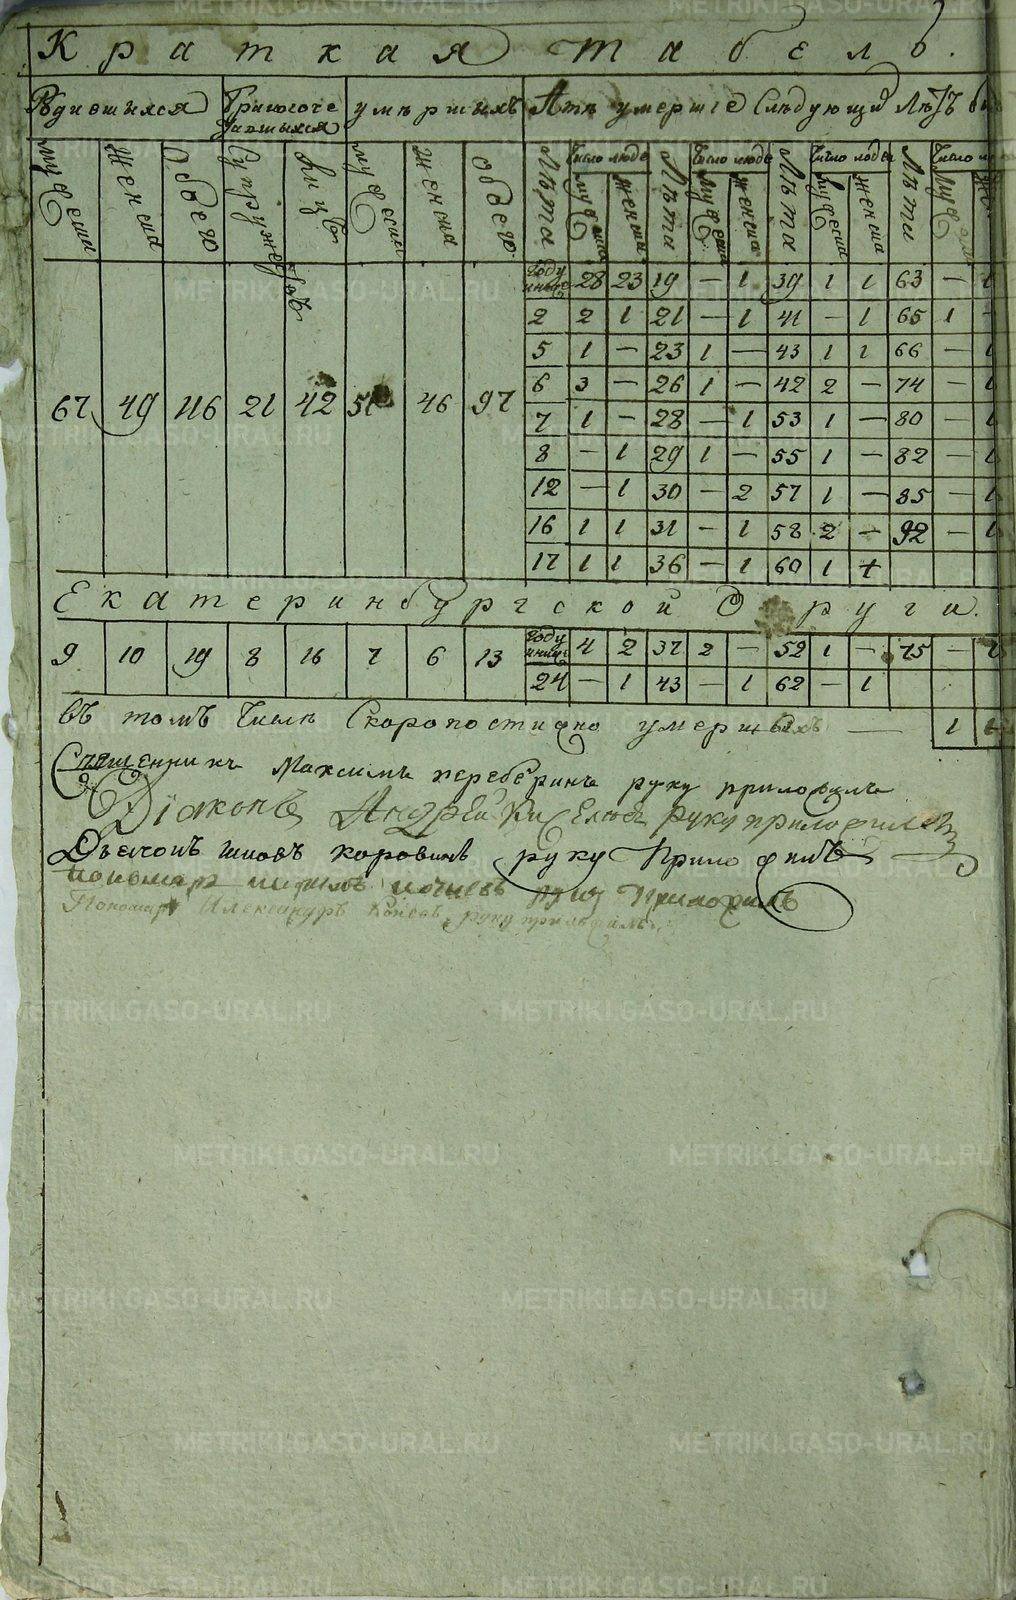 Краткая табель.
Родившихся Бракосочетавшихся умершихъ Лѣтъ умершие Слѣдующихъ Лѣтъ
мужеска Женска Обоего Супружествъ лицъ мужеска женска обоего Лѣта Число людей Лѣта Число людей Лѣта Число людей Лѣта Число
мужеска женска мужеска женска мужеска женска мужеска
году 28 23 19 — 1 39 1 1 63 — 1
2 2 1 21 — 1 41 — 1 65 1 —
5 1 — 23 1 — 43 1 1 66 — 1
6 3 — 26 1 — 42 2 — 74 — 1
67 49 116 21 42 51 46 97
7 1 — 28 — 1 53 1 — 80 — 1
8 — 1 29 1 — 55 1 — 82 — 1
12 — 1 30 — 2 57 1 — 85 — 1
16 1 1 31 — 1 58 2 — 92 — 1
17 1 1 36 — 1 60 1 +
Екатеринбургской Округи.
9 10 19 8 16 7 6 13 году 4 2 37 2 — 52 1 — 75 —
24 — 1 43 — 1 62 — 1
Въ томъ Числѣ Скоропостижно умершихъ — 1
Священникъ Максимъ руку приложилъ
Діаконъ Андрей Киселевъ руку приложилъ
Дьячокъ Коровинъ руку Приложилъ
пономарь приложилъ
Пономарь Александръ Поповъ руку приложилъ
METRIKI.GASO-URAL.RU